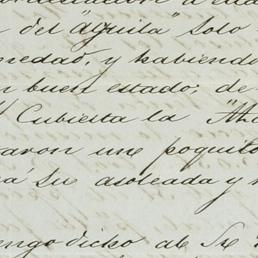 del "aguila" solo
nedad, y habiendo
buen estado; de
Cubierta la
aron un poquito
su asoleada y
engo dicho al Sr